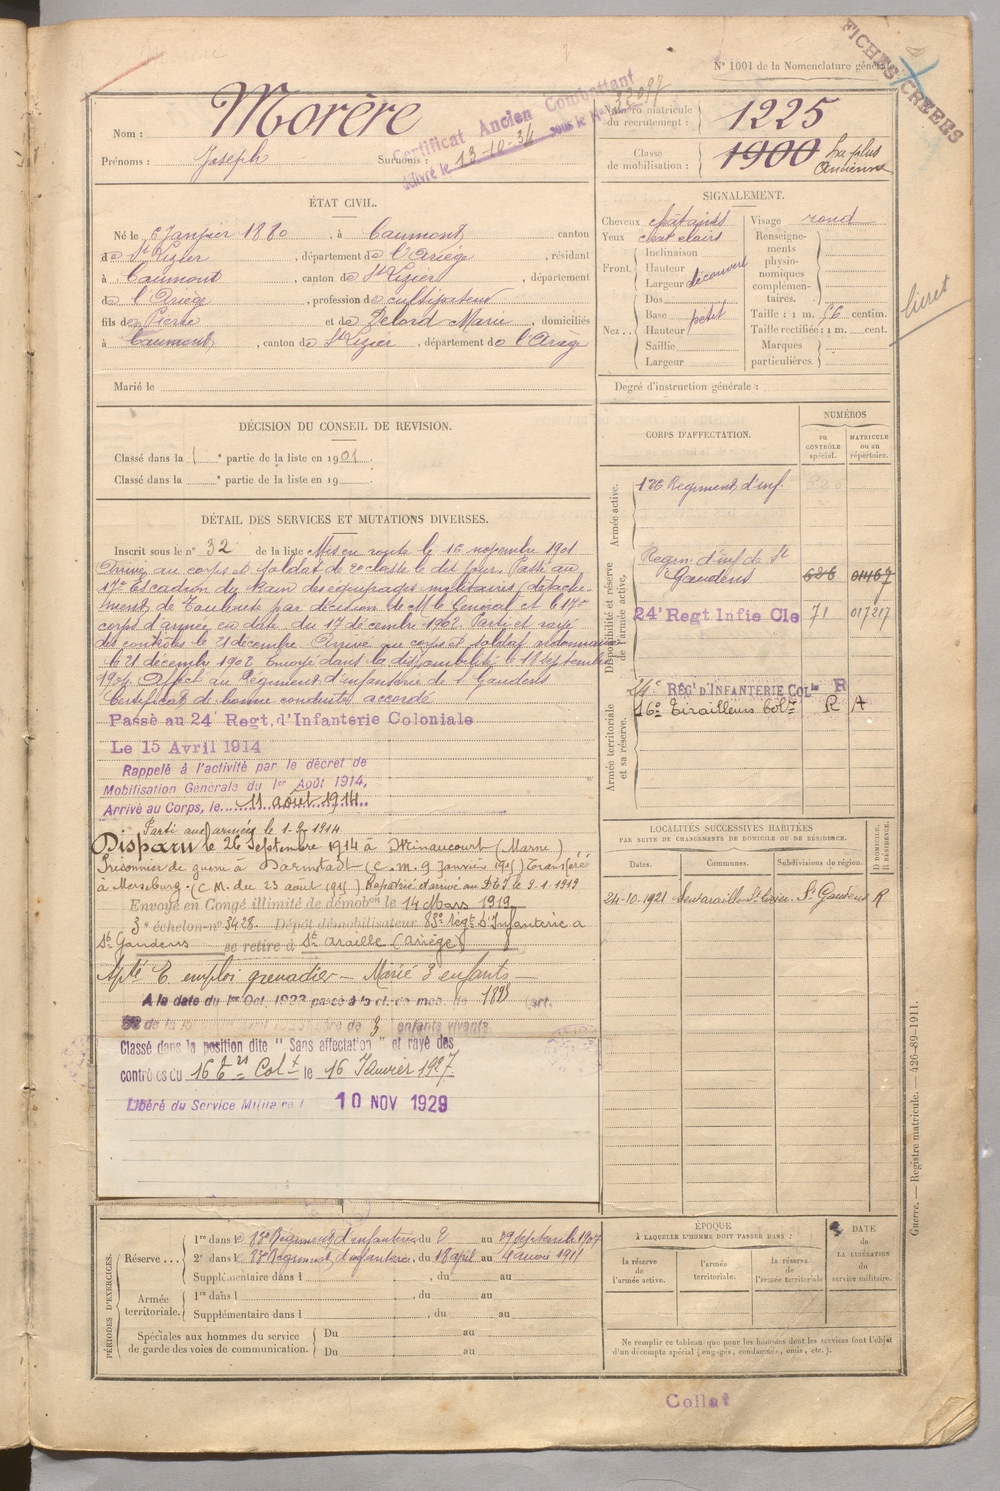 FICHES CRÉÉES
N° 1001 de la Nomenclature générale
Nom : Morère
Prénoms : Joseph Surnoms :
Certificat Ancien Combattant
délivré le 13-10-34 sous le No
Numéro matricule du recrutement : 1225
Classe de mobilisation : 1900 La plus Ancienne
ÉTAT CIVIL.
Né le 6 Janvier 1880, à Caumont, canton
de St Lizier, département de l'Ariège, résidant
à Caumont, canton de St Lizier, département
de l'Ariège, profession de cultivateur
fils de Pierre et de Delord Marie, domiciliés
à Caumont, canton de St Lizier, département de l'Ariège
Marié le
SIGNALEMENT.
Cheveux châtains
Yeux chat clairs
Front. Inclinaison
Hauteur découvert
Largeur
Nez.. Dos
Base petit
Hauteur
Saillie
Largeur
Visage rond
Renseignements physionomiques complémentaires.
Taille : 1 m. 56 centim.
Taille rectifiée : 1 m. cent.
Marques particulières.
livret
Degré d'instruction générale :
DÉCISION DU CONSEIL DE REVISION.
Classé dans la 1e partie de la liste en 1901.
Classé dans la e partie de la liste en 19
DÉTAIL DES SERVICES ET MUTATIONS DIVERSES.
Inscrit sous le n° 32 de la liste Mis en route le 16 novembre 1901
Arrivé au corps et soldat de 2e classe le dit jour. Passé au
17e Escadron du train des équipages militaires (détache-
ment de Toulouse par décision de M le Général et le 17e
corps d'armée en date du 17 décembre 1902. Parti et rayé
des contrôles le 21 décembre. Arrivé au corps et soldat
le 21 décembre 1902. Envoyé dans la disponibilité le 18 septembre
1904. Affecté au Régiment d'infanterie de St Gaudens
Certificat de bonne conduite accordé
Passé au 24e Regt. d'Infanterie Coloniale
Le 15 Avril 1914
Rappelé à l'activité par le décret de
Mobilisation Générale du 1er Août 1914,
Arrivé au Corps, le 11 août 1914.
Parti aux armées le 1-9-1914
Disparu le 26 Septembre 1914 à Minaucourt (Marne)
Prisonnier de guerre à Darmstadt (C.M. 9 Janvier 1915) Transféré
à Merseburg. (C.M. du 23 août 1915) Rapatrié arrivé au D.E.I le 9-1-1919
Envoyé en Congé illimité de démobon le 14 Mars 1919
3e échelon n° 3428. Dépôt démobilisateur 83e Régt d'Infanterie à
St Gaudens se retire à Ste Araille (Ariège)
Apte E. emploi grenadier — Marié 3 enfants —
A la date du 1er Oct. 1923 passé à la cl. de mob. de 1893 (art.
58 de la père de 3 enfants vivants
Classé dans la position dite " Sans affectation " et rayé des
contrôles du 16e trs Colt le 16 Janvier 1927
Libéré du Service Militaire l 10 NOV 1929
CORPS D'AFFECTATION.
NUMÉROS
au CONTRÔLE spécial.
MATRICULE ou au répertoire.
Armée active.
126 Régiment d'inf.
Disponibilité et réserve de l'armée active.
Régim. d'inf de St Gaudens 626 01467
24e Regt Infie Cle 71 017217
Armée territoriale et sa réserve.
24e RÉGt D'INFANTERIE COLle R
16e Tirailleurs Colx R A
LOCALITÉS SUCCESSIVES HABITÉES
PAR SUITE DE CHANGEMENTS DE DOMICILE OU DE RÉSIDENCE.
Dates. Communes. Subdivisions de région. D. DOMICILE. R. RÉSIDENCE.
24-10-1921 St Gaudens R
Guerre. — Registre matricule. — 426-89-1911.
PÉRIODES D'EXERCICES.
Réserve...
1re dans le 83e Régiment d'infanterie, du 2 au 29 septembre 1907
2e dans le 83e Régiment d'infanterie, du 18 avril au 4 mai 1911
Supplémentaire dans l , du au
Armée territoriale.
1re dans l , du au
Supplémentaire dans l , du au
Spéciales aux hommes du service de garde des voies de communication.
Du au
Du au
ÉPOQUE
À LAQUELLE L'HOMME DOIT PASSER DANS :
la réserve de l'armée active.
l'armée territoriale.
la réserve de l'armée territoriale
DATE DE LA LIBÉRATION du service militaire.
Ne remplir ce tableau que pour les hommes dont les services font l'objet
d'un décompte spécial (engagés, condamnés, omis, etc.).
Collat